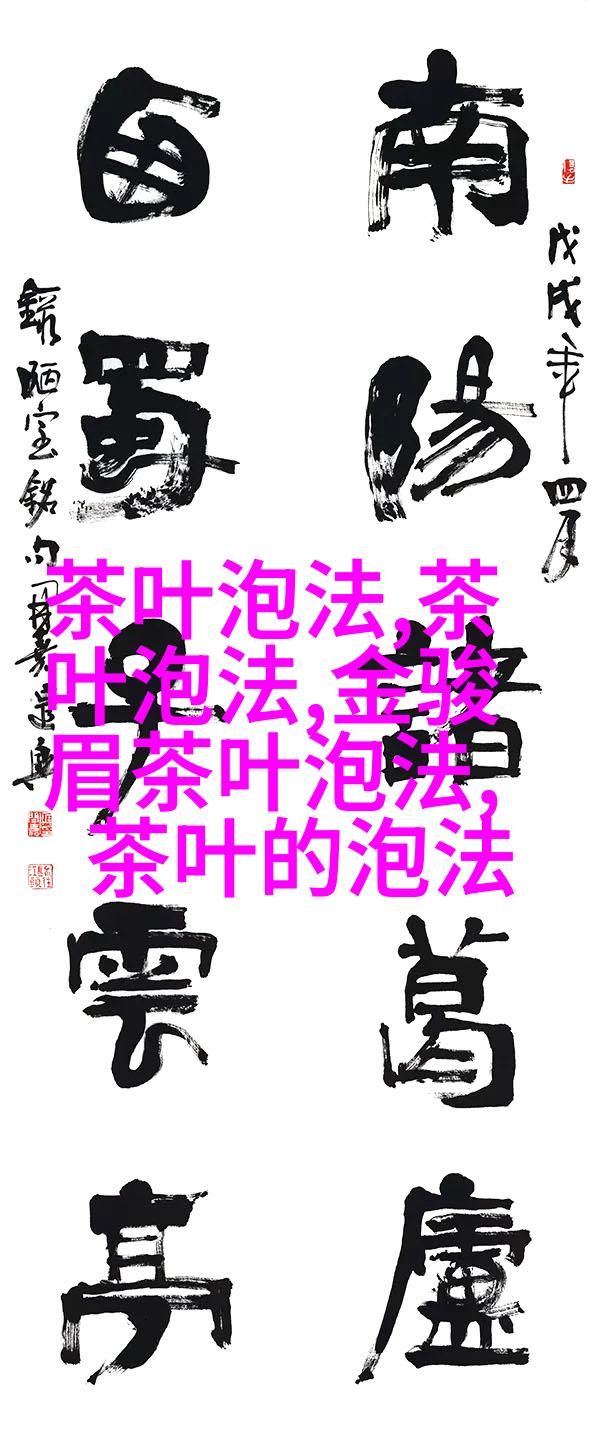 戊戌年四月
南陽諸葛廬
西蜀子雲亭
錄陋室銘句
茶叶泡法,茶
叶泡法,金骏
眉茶叶泡法,
茶叶的泡法